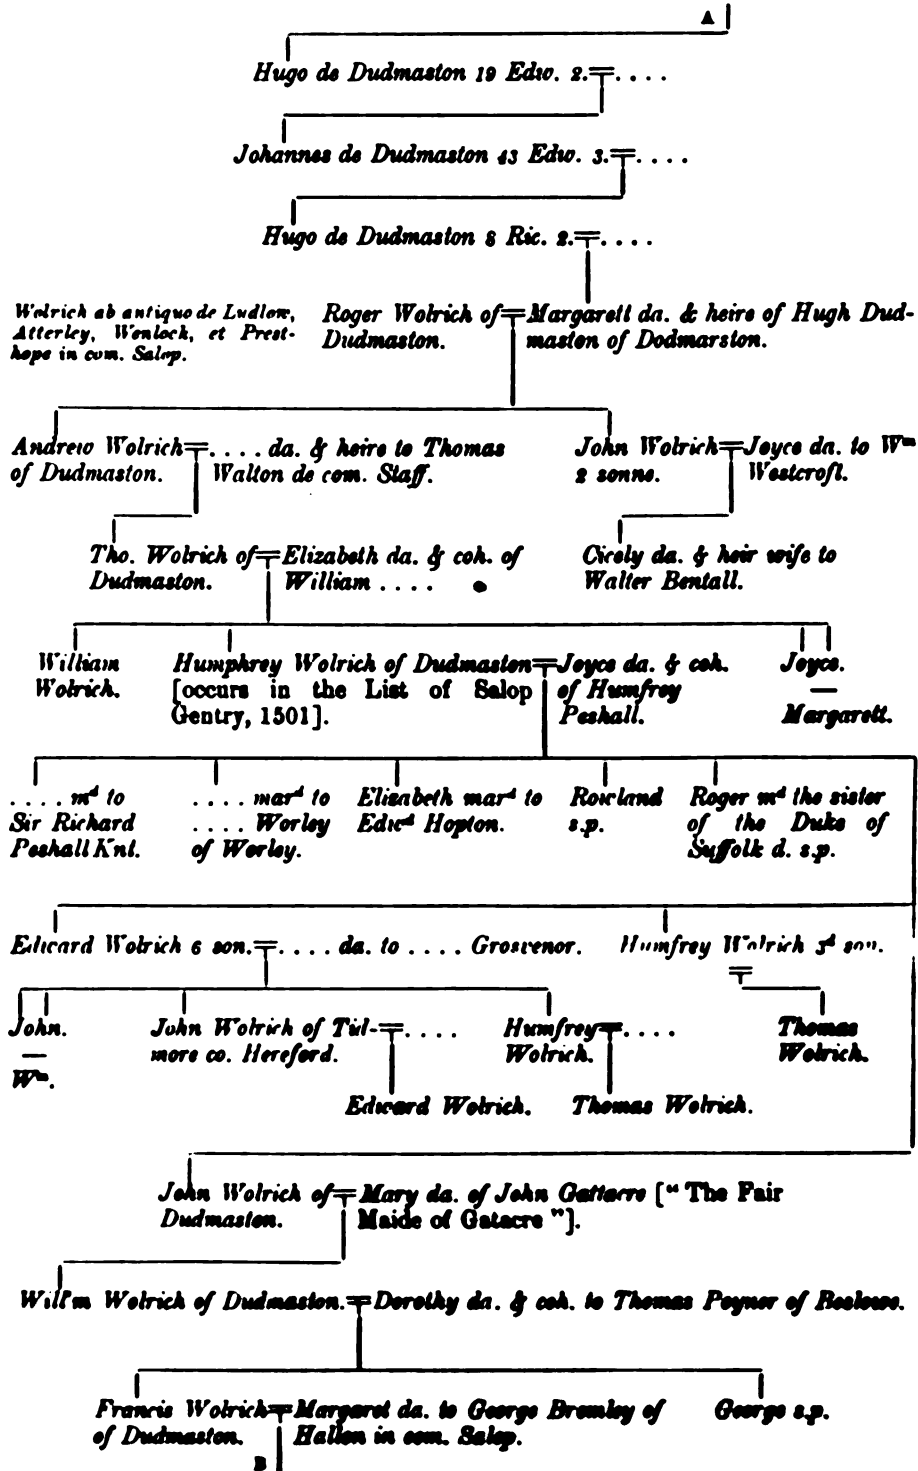 A
Hugo de Dudmaston 19 Edw. 2.=. . . .
Johannes de Dudmaston 43 Edw. 3.=. . . .
Hugo de Dudmaston 8 Ric. 2.=. . . .
Wolrich ab antiquo de Ludlow,
Atterley, Wenlock, et Prest-
hope in com. Salop.
Roger Wolrich of=Margarett da. & heire of Hugh Dud-
Dudmaston. maston of Dodmarston.
Andrew Wolrich=. . . . da. & heire to Thomas
of Dudmaston. Walton de com. Staff.
John Wolrich=Joyce da. to Wm
2 sonne. Westcroft.
Tho. Wolrich of=Elizabeth da. & coh. of
Dudmaston. William . . . .
Cicely da. & heir wife to
Walter Bentall.
William
Wolrich.
Humphrey Wolrich of Dudmaston=Joyce da. & coh.
[occurs in the List of Salop of Humfrey
Gentry, 1501]. Peshall.
Joyce.
—
Margarett.
. . . . md to
Sir Richard
Peshall Knt.
. . . . mard to
. . . . Worley
of Worley.
Elizabeth mard to
Edwd Hopton.
Rowland
s.p.
Roger md the sister
of the Duke of
Suffolk d. s.p.
Edward Wolrich 6 son.=. . . . da. to . . . . Grosvenor.
Humfrey Wolrich 3d son.
=
John.
—
Wm.
John Wolrich of Tid-=. . . .
more co. Hereford.
Humfrey=. . . .
Wolrich.
Thomas
Wolrich.
Edward Wolrich.
Thomas Wolrich.
John Wolrich of=Mary da. of John Gattacre ["The Fair
Dudmaston. Maide of Gatacre"].
Will'm Wolrich of Dudmaston.=Dorothy da. & coh. to Thomas Poyner of Beslowe.
Francis Wolrich=Margaret da. to George Bromley of
of Dudmaston. Hallon in com. Salop.
George s.p.
B